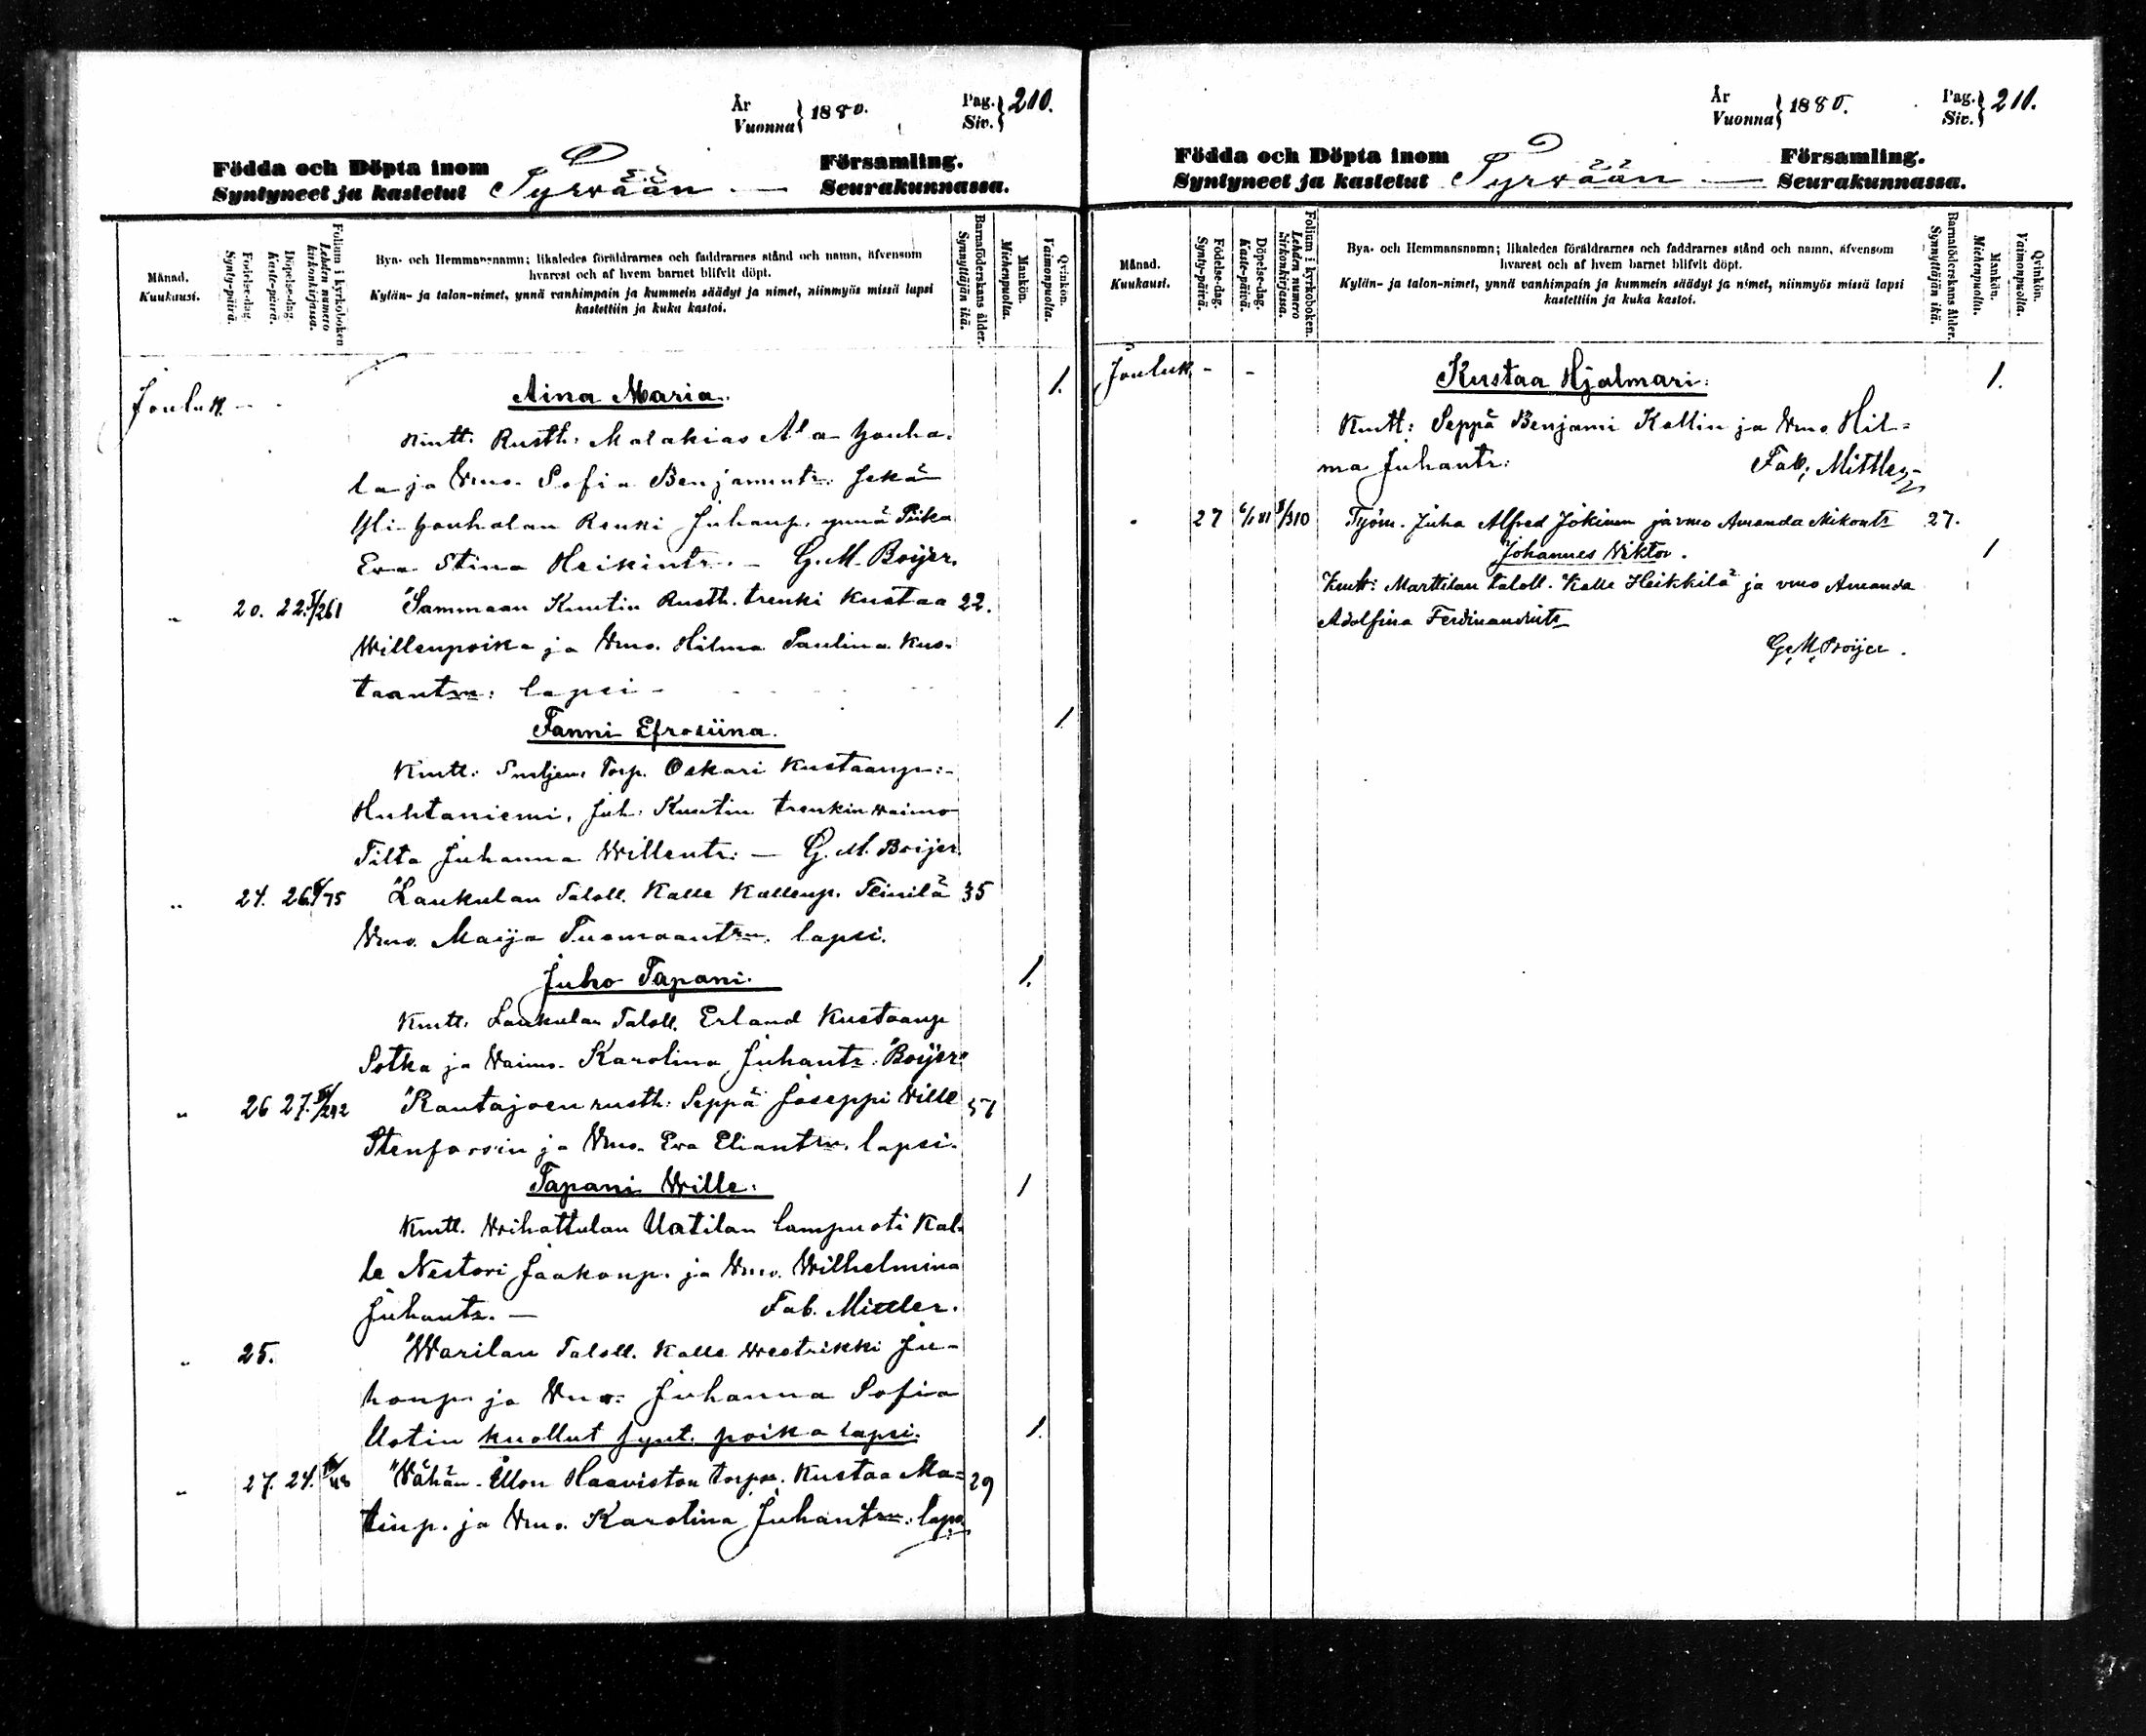 År
Vuonna } 1880.
Pag.
Siv. } 210.
Födda och Döpta inom
Syntyneet ja kastetut
Tyrvään
Församling.
Seurakunnassa.
Månad.
Kuukausi.
Födelse-dag.
Synty-päivä.
Döpelse-dag.
Kaste-päivä.
Folium i kyrkoboken
Lehden numero
kirkonkirjassa.
Bya- och Hemmansnamn; likaledes föräldrarnes och faddrarnes stånd och namn, äfvensom
hvarest och af hvem barnet blifvit döpt.
Kylän- ja talon-nimet, ynnä vanhimpain ja kummein säädyt ja nimet, niinmyös missä lapsi
kastettiin ja kuka kastoi.
Barnaföderskans ålder.
Synnyttäjän ikä.
Mankön.
Miehenpuolta.
Qvinkön.
Vaimonpuolta.
Jouluk. - - Aina Maria. 1.
Kmtt. Rusth: Malakias Ala Houha-
la ja Vmo. Sofia Benjamintr. Sekä
Yli-Houhalan Renki Juhanp. ynnä Piika
Eva Stina Heikintr. - G. M. Boijer.
" 20. 22. /261 Sammaan Kuutin Rusth. trenki Kustaa 22.
Willenpoika ja Vmo. Hilma Paulina Kus-
taantrn: lapsi -
Fanni Efrosiina. 1
Kmtt: Torp. Oskari Kustaanp:-
Huhtaniemi, Juh: Kuutin trenkin waimo
Tilta Juhanna Willentr: - G. M. Boijer.
" 24. 26. /75 Laukulan Taloll. Kalle Kallenp. Teinilä 35
Vmo. Maija Tuomaantrn. lapsi.
Juho Tapani. 1.
Kmtt. Laukulan Taloll. Erland Kustaanp
Sotka ja Waimo. Karolina Juhantr. Boijer
" 26 27. /292 Rautajoen rusth: Seppä Joseppi Wille
Stenforsin ja Vmo. Eva Eliantrn. lapsi.
Tapani Wille. 1
Kmtt. Wihattulan Uotilan lampuoti Kal-
le Nestori Jaakonp. ja Vmo. Wilhelmina
Juhantr. - Fab. Mittler.
" 25. Warilan Taloll. Kalle Westrikki Ju-
honp. ja Vmo: Juhanna Sofia
Uotin kuollut synt. poika lapsi. 1.
" 27. 24. Wähän-Illon Haaviston torpp. Kustaa Ma= 29
tinp. ja Vmo. Karolina Juhantrn: lapsi
År
Vuonna } 1880.
Pag.
Siv. } 211.
Födda och Döpta inom
Syntyneet ja kastetut
Tyrvään
Församling.
Seurakunnassa.
Månad.
Kuukausi.
Födelse-dag.
Synty-päivä.
Döpelse-dag.
Kaste-päivä.
Folium i kyrkoboken.
Lehden numero
kirkonkirjassa.
Bya- och Hemmansnamn; likaledes föräldrarnes och faddrarnes stånd och namn, äfvensom
hvarest och af hvem barnet blifvit döpt.
Kylän- ja talon-nimet, ynnä vanhimpain ja kummein säädyt ja nimet, niinmyös missä lapsi
kastettiin ja kuka kastoi.
Barnaföderskans ålder.
Synnyttäjän ikä.
Mankön.
Miehenpuolta.
Qvinkön.
Vaimonpuolta.
Jouluk. - - Kustaa Hjalmari: 1.
Kmtt: Seppä Benjami Kallin ja Vmo. Hil=
ma Juhantr: Fab. Mittler
27 6/1 81 /310 Työm. Juha Alfred Jokinen ja vmo Amanda Nikontr 27.
Johannes Viktor. 1
Kmtt: Marttilan taloll. Kalle Heikkilä ja vmo Amanda
Adolfina Ferdinandintr
G. M. Boijer.